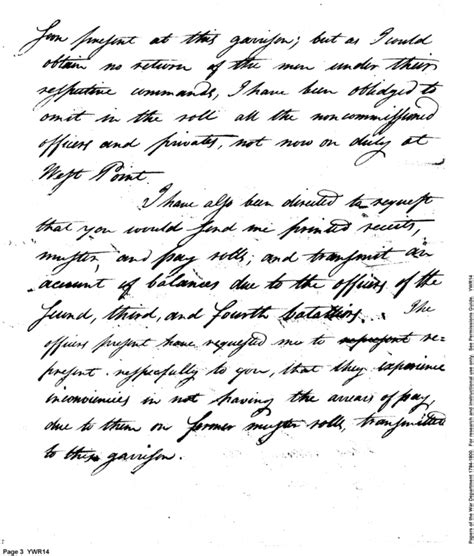 present at this garrison; but as I could
obtain no return of the men under their
respective commands, I have been obliged to
omit in the roll all the noncommissioned
officers and privates, not now on duty at
West Point.
I have also been directed to request
that you would send me printed receits,
muster, and pay rolls; and transmit an
account of balances due to the officers of the
second, third, and fourth batallions. The
officers present have requested me to represent re-
present respecfully to you, that they experience
inconviencies in not having the arrears of pay,
due to them on former muster rolls, transmitted
to this garrison.
Page 3 YWR14
Papers of the War Department 1784-1800. For research and instructional use only. See Permissions Guide. YWR14